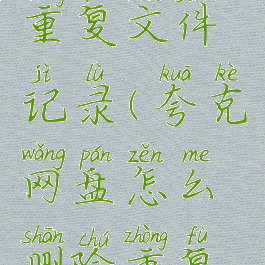 重复文件
jì lù kuā kè
记录(夸克
wǎng pán zěn me
网盘怎么
shān chú zhòng fù
删除重复